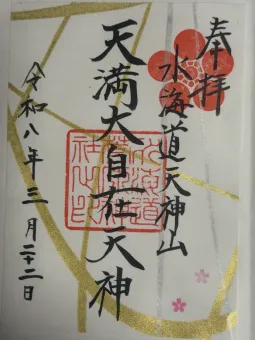 奉拝
水海道天神山
天満大自在天神
令和八年三月二十二日